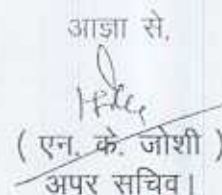 आज्ञा से,
( एन. के. जोशी )
अपर सचिव।